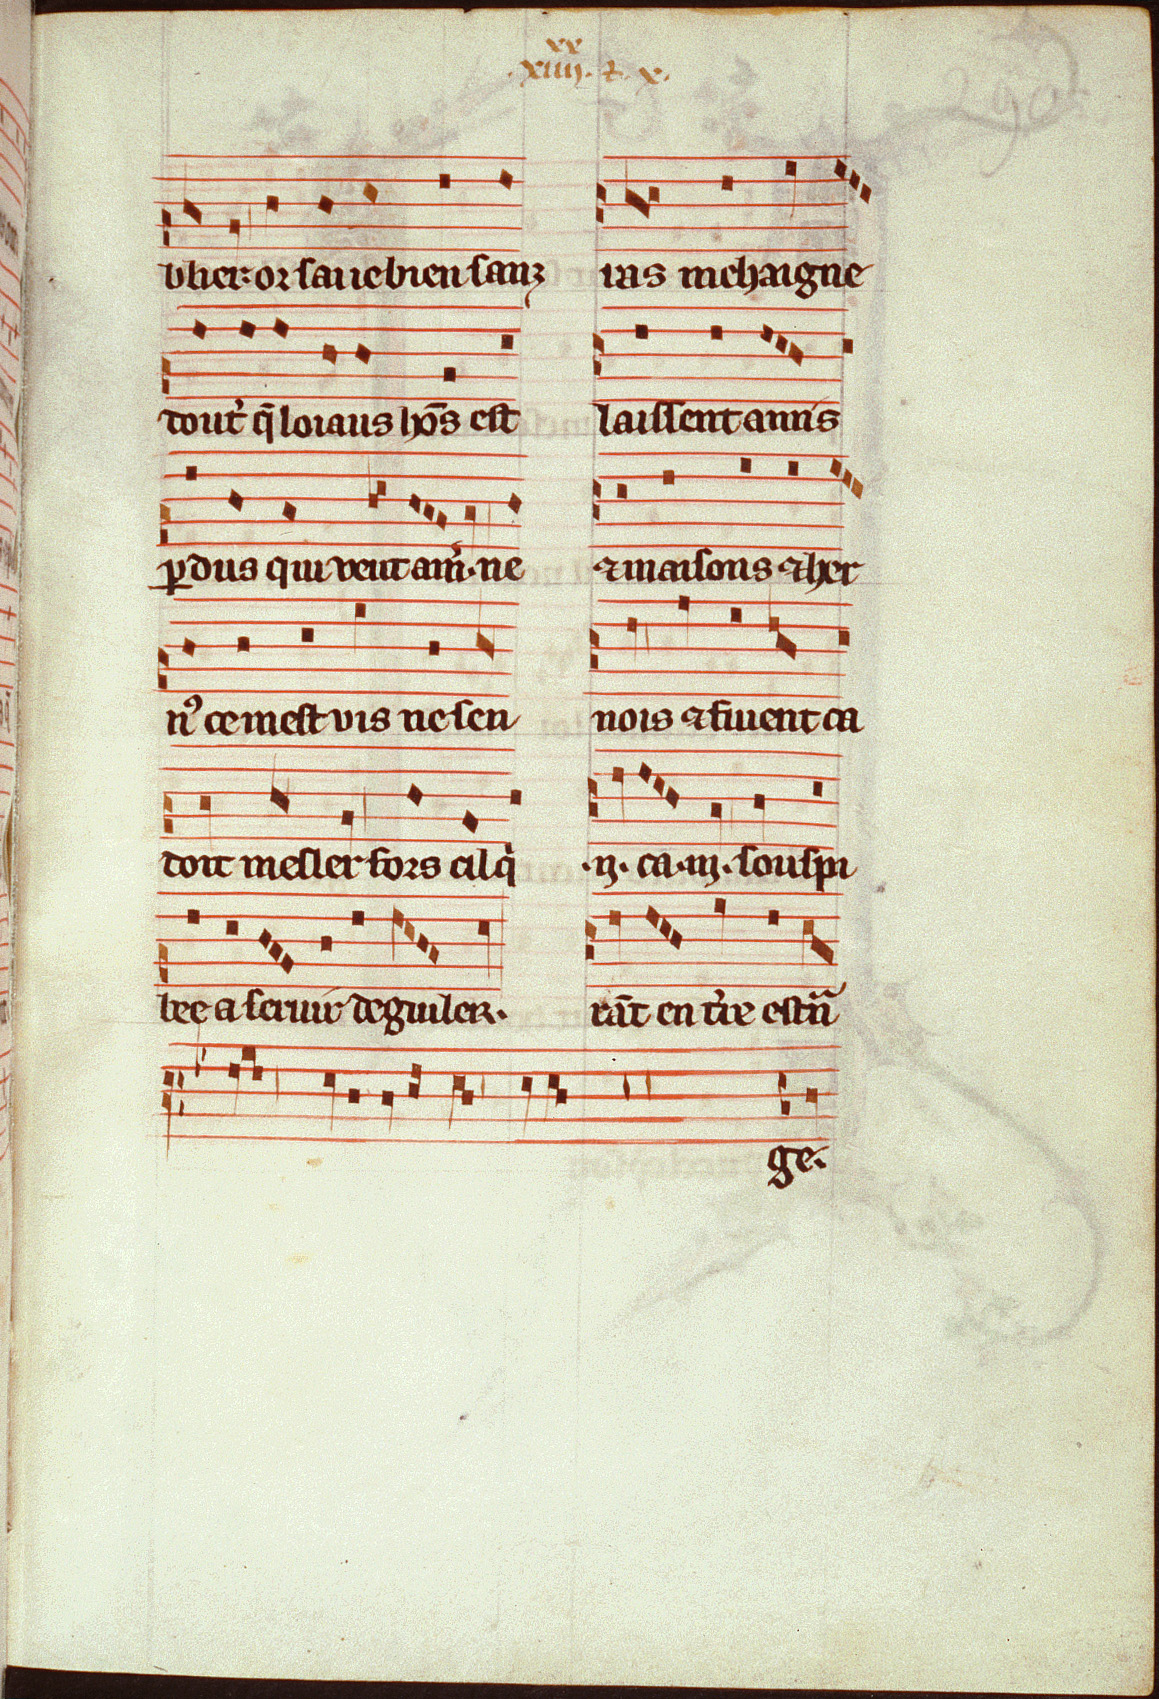 xx
.xiiij. ⁊. x.
290
blier. or sai ie bien sanz
dout̾ q̄ loiaus hō̄s est
ꝑdus qui veut am̾. ne
nꝰ ce mest vis ne sen
doit mesler fors cil q̾
bee a seruir de guiler.
ras mehaigne
laissent amis
⁊ maisons ⁊ her
nois ⁊ siuent ca
.ij. ca .iij. souspi
rāt en t̾re estn̄
ge.